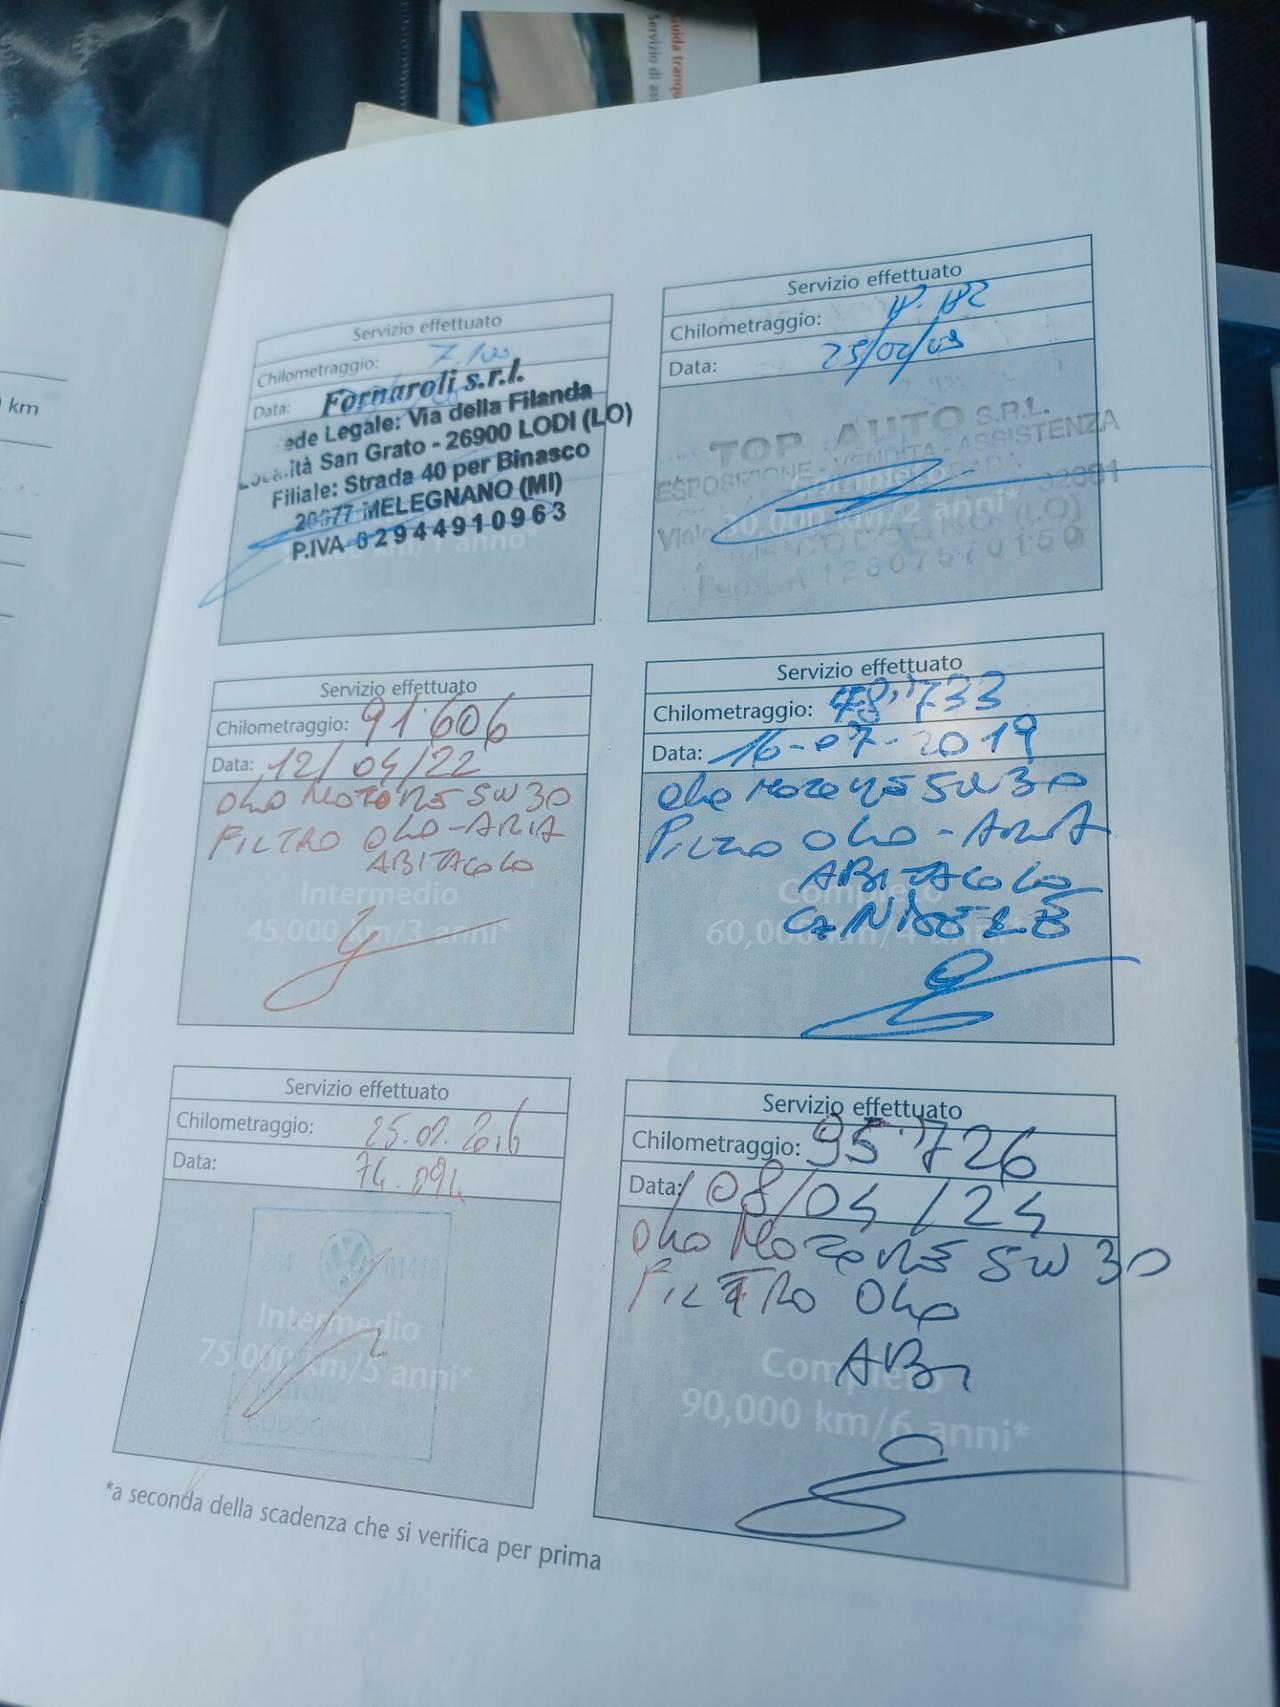 Guida tranqu
Servizio di as
km
Servizio effettuato
Chilometraggio: 7.100
Data:
Fornaroli s.r.l.
ede Legale: Via della Filanda
Località San Grato - 26900 LODI (LO)
Filiale: Strada 40 per Binasco
20077 MELEGNANO (MI)
P.IVA 02944910963
1 anno*
Servizio effettuato
Chilometraggio:
Data: 25/02/09
TOP AUTO S.R.L.
ESPOSIZIONE - VENDITA - ASSISTENZA
Completo
30,000 km/2 anni*
Viale
(LO)
12807570150
Servizio effettuato
Chilometraggio: 91.606
Data: 12/04/22
OLIO MOTORE 5W30
FILTRO OLIO - ARIA
ABITACOLO
Intermedio
45,000 km/3 anni*
Servizio effettuato
Chilometraggio: 78.733
Data: 16-07-2019
OLIO MOTORE 5W30
FILTRO OLIO - ARIA
ABITACOLO
CANDELE
Completo
60,000 km/4 anni*
Servizio effettuato
Chilometraggio: 25.02.2016
Data: 74.094
01418
Intermedio
75,000 km/5 anni*
Servizio effettuato
Chilometraggio: 95.726
Data: 08/04/24
OLIO MOTORE 5W30
FILTRO OLIO
ABI
Completo
90,000 km/6 anni*
*a seconda della scadenza che si verifica per prima